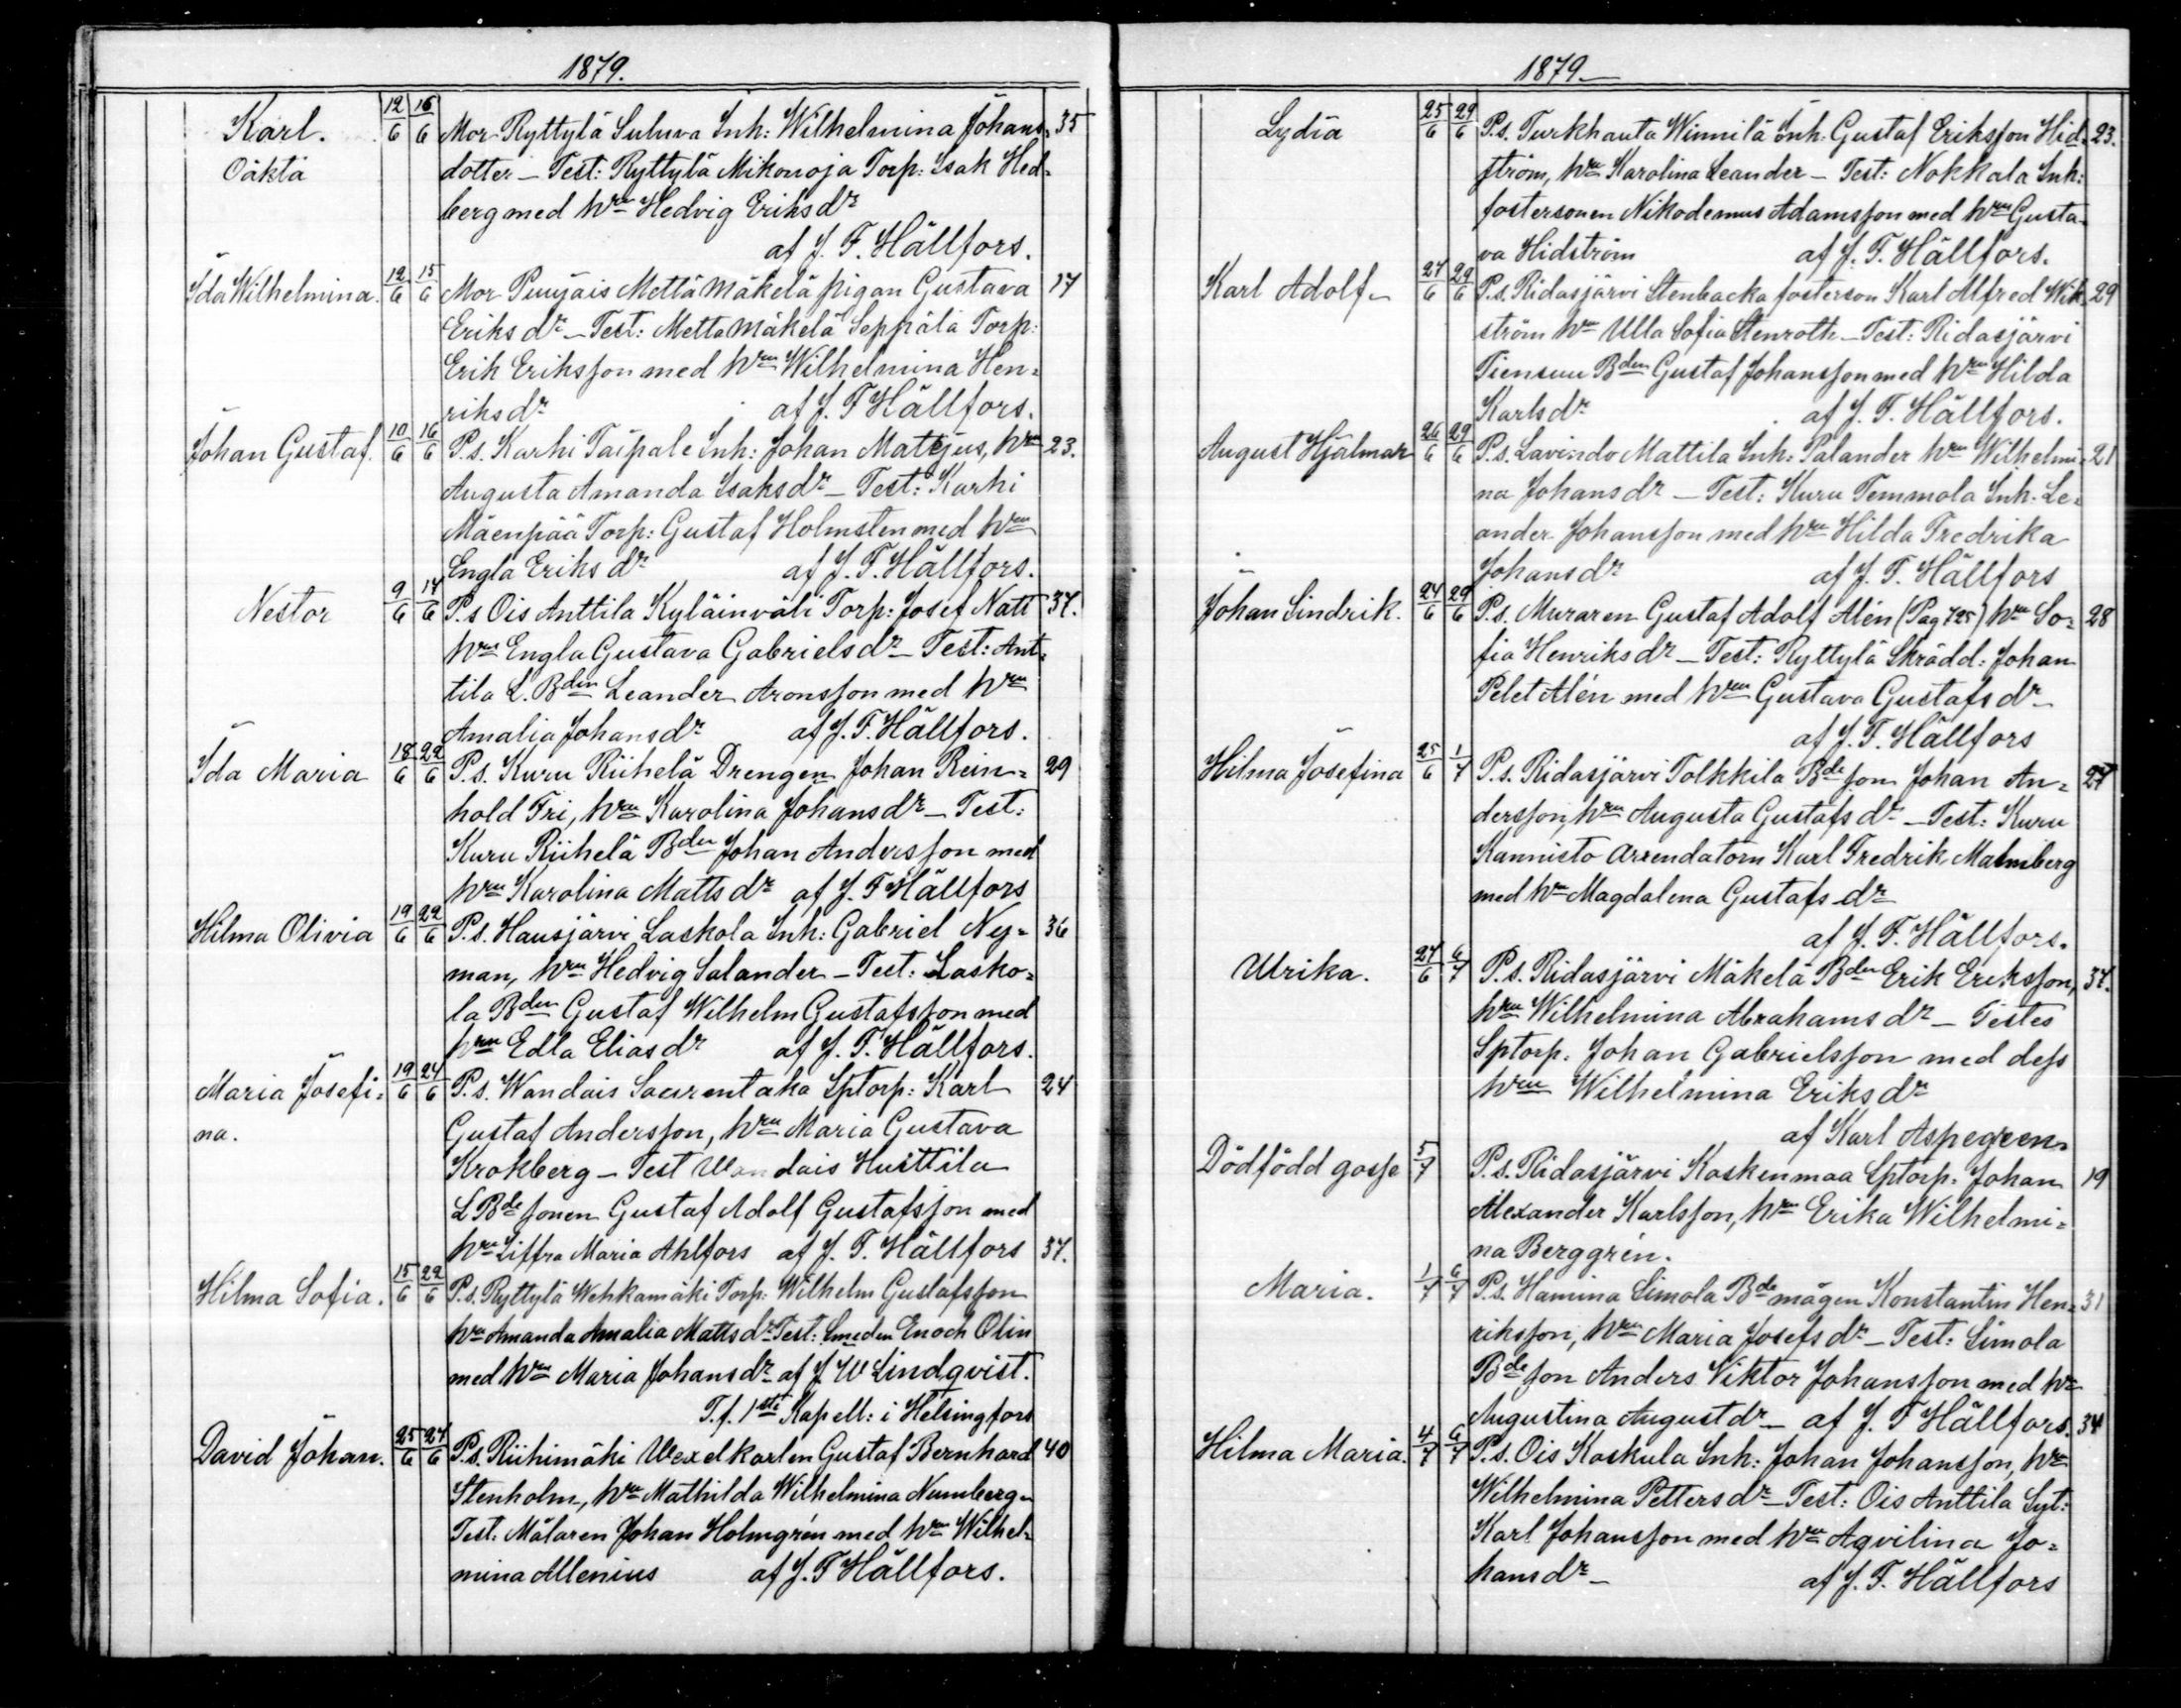 1879.
Karl. 12/6 16/6 Mor Ryttylä Suluva Inh: Wilhelmina Johans= 35
Oäkta dotter – Test: Ryttylä Mikonoja Torp: Isak Hed=
berg med hrm Hedvig Eriksdr
af J. F. Hällfors.
Ida Wilhelmina. 12/6 15/6 Mor Punjais Mettämäkelä pigan Gustava 17
Eriksdr – Test: Mettamäkelä Seppälä Torp:
Erik Eriksson med hrm Wilhelmina Hen=
riksdr af J. F Hällfors.
Johan Gustaf. 10/6 16/6 P.s. Karhi Taipale Inh: Johan Matejus, hrm 23.
Augusta Amanda Isaksdr – Test: Karhi
Mäenpää Torp: Gustaf Holmsten med hrm
Engla Eriksdr af J. F. Hällfors.
Nestor 9/6 14/6 P.s Ois Anttila Kyläinväli Torp: Josef Natt 37.
hrm Engla Gustava Gabrielsdr – Test: Ant=
tila L. Bden Leander Aronsson med hrm
Amalia Johansdr af J. F. Hällfors.
Ida Maria 18/6 22/6 P.s. Kuru Riihelä Drengen Johan Rein= 29
hold Fri, hrm Karolina Johansdr – Test:
Kuru Riihelä Bden Johan Andersson med
hrm Karolina Mattsdr af J. F Hällfors
Hilma Olivia 19/6 22/6 P.s. Hausjärvi Laskola Inh: Gabriel Ny= 36
man, hrm Hedvig Salander – Test: Lasko=
la Bden Gustaf Wilhelm Gustafsson med
hrm Edla Eliasdr af J. F. Hällfors.
Maria Josefi= 19/6 24/6 P.s. Wandais Saurentaka Sptorp: Karl 24
na. Gustaf Andersson, hrm Maria Gustava
Krokberg – Test Wandais Huittila
L Bde sonen Gustaf Adolf Gustafsson med
hrm Ziffra Maria Ahlfors af J. F. Hällfors 37.
Hilma Sofia. 15/6 22/6 P.s. Ryttylä Wehkamäki Torp: Wilhelm Gustafsson
hrm Amanda Amalia Mattsdr Test: Smeden Enoch Olin
med hrm Maria Johansdr af J. W Lindqvist.
T.f. 1ste Kapell: i Helsingfors
David Johan. 25/6 27/6 P.s. Riihimäki Wexelkarlen Gustaf Bernhard 40
Stenholm, hrm Mathilda Wilhelmina Numberg –
Test. Målaren Johan Holmgrén med hrm Wilhel=
mina Allenius af J. F Hällfors.
1879
Lydia 25/6 29/6 P.s. Turkhauta Winnilä Inh: Gustaf Eriksson Hid= 23.
ström, hrm Karolina Leander – Test: Nokkala Inh:
fostersonen Nikodemus Adamsson med hrm Gusta=
va Hidström af J. F. Hällfors.
Karl Adolf – 27/6 29/6 P.s. Ridasjärvi Stenbacka fosterson Karl Alfred Wik= 29
ström hrm Ulla Sofia Stenroth – Test: Ridasjärvi
Tiensuu Bden Gustaf Johansson med hrm Hilda
Karlsdr af J. F. Hällfors.
August Hjalmar 26/6 29/6 P.s. Lavindo Mattila Inh: Palander hrm Wilhelmi= 21
na Johansdr – Test: Kuru Temmola Inh. Le=
ander Johansson med hrm Hilda Fredrika
Johansdr af J. F. Hällfors
Johan Sindrik. 24/6 29/6 P.s. Muraren Gustaf Adolf Alén (Pag 725) hrm So= 28
fia Henriksdr – Test: Ryttylä Skrädd: Johan
Pelet Alén med hrm Gustava Gustafsdr –
af J. F. Hällfors
Hilma Josefina 25/6 1/7 P.s. Ridasjärvi Tolkkila Bde son Johan An= 27
dersson, hrm Augusta Gustafsdr – Test: Kuru
Kannisto Arrendatorn Karl Fredrik Malmberg
med hrm Magdalena Gustafsdr
af J. F. Hällfors.
Ulrika. 27/6 6/7 P.s. Ridasjärvi Mäkelä Bden Erik Eriksson, 37.
hrm Wilhelmina Abrahamsdr – Testes
Sptorp: Johan Gabrielsson med dess
hrm Wilhelmina Eriksdr
af Karl Aspegren.
Dödfödd gosse 5/7 P.s. Ridasjärvi Koskenmaa Sptorp: Johan 19
Alexander Karlsson, hrm Erika Wilhelmi=
na Berggrén.
Maria. 1/7 6/7 P.s. Hamina Simola Bde mågen Konstantin Hen= 31
riksson, hrm Maria Josefsdr – Test: Simola
Bde son Anders Viktor Johansson med hrm
Augustina Augustdr – af J. F Hällfors. 34
Hilma Maria. 4/7 6/7 P.s. Ois Koskula Inh: Johan Johansson, hrm
Wilhelmina Pettersdr – Test: Ois Anttila Syt:
Karl Johansson med hrm Aqvilina Jo=
hansdr – af J. F. Hällfors